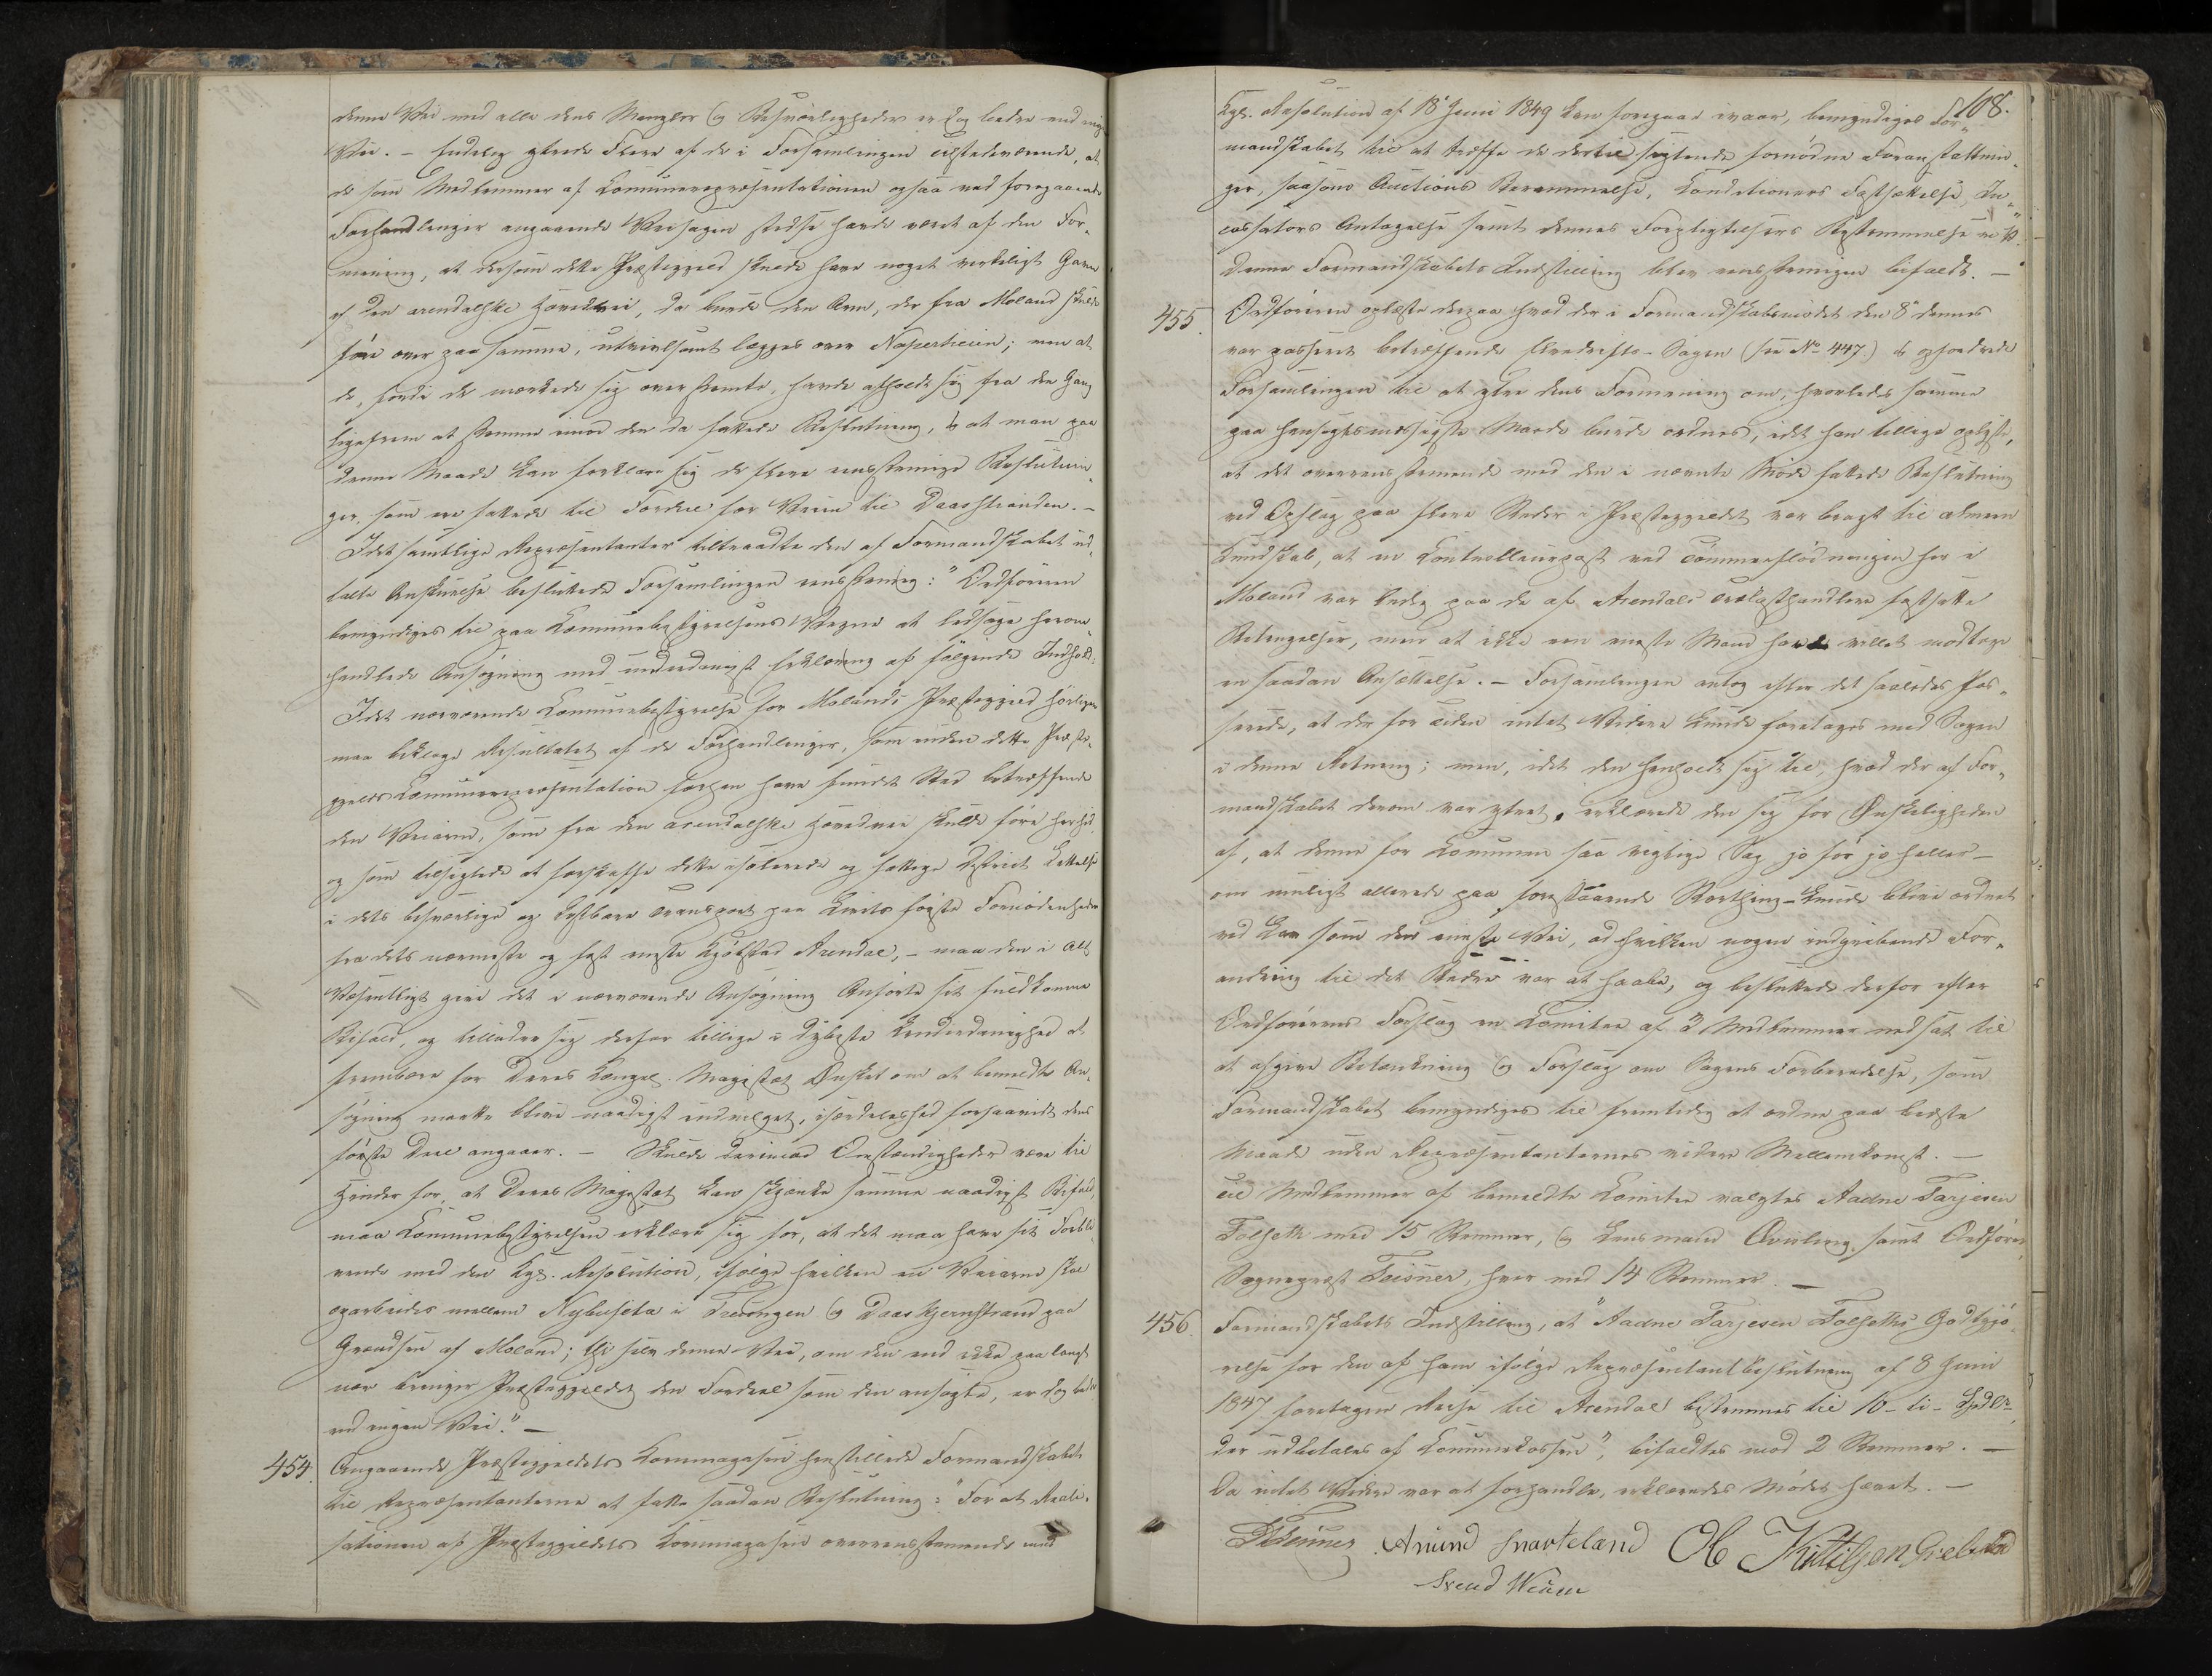 denne Vei med alle dens Mangler og Besværligheder er dog bedre end ingen
Vei. – Endelig ytrede Flere af de i Forsamlingen tilstedeværende, at
de som Medlemmer af Communerepræsentationen ogsaa ved foregaaende
Forhandlinger angaaende Veisagen stedse havde været af den For-
mening, at dersom dette Præstegjeld skulde have noget virkeligt Gavn
af den arendalske Hovedvei, da burde den Arm, der fra Moland skulde
føre over paa samme, utvivlsomt lægges over Napertheien; men at
de, fordi de mærkede sig overstemte, havde afholdt sig fra den Gang
ligefrem at stemme imod den da fattede Beslutning, & at man paa
denne Maade kan forklare sig de flere eenstemmige Beslutnin-
ger, som ere fattede til Fordeel for Veien til Daasstranden. –
Idet samtlige Repræsentanter tiltraadte den af Formandskabet ud-
talte Anskuelse besluttede Forsamlingen eenstemmig: "Ordføreren
bemyndiges til paa Communebestyrelsens Vegne at ledsage herom-
handlede Ansøgning med underdanigst Erklæring af følgende Indhold:
Idet nærværende Communebestyrelse for Molands Præstegjeld høiligen
maa beklage Resultatet af de Forhandlinger, som inden dette Præste-
gjelds Communerepræsentation forhen have fundet Sted betræffende
den Veiarm, som fra den arendalske Hovedvei skulde føre herhid
og som tilsigtede at forskaffe dette isolerede og fattige District Lettelse
i dets besværlige og kostbare Transport paa Livets første Fornødenheder
fra dets nærmeste og fast eneste Kjøbstad Arendal, – maa den i Alt
Væsentligt give det i nærværende Ansøgning Anførte sit fuldkomne
Bifald, og tillader sig derfor tillige i dybeste Underdanighed at
frembære for Deres Kongel. Majestæt Ønsket om at bemeldte An-
søgning maatte blive naadigst indvilget, isærdeleshed forsaavidt dens
første Deel angaaer. – Skulde derimod Omstændigheder være til
Hinder for, at Deres Majestæt kan skjænke samme naadigst Bifald,
maa Communebestyrelsen erklære sig for, at det maa have sit Forbli-
vende med den Kgl. Resolution, ifølge hvilken en Veiarm skal
oparbeides mellem Nybuseta i Treungen & Daaskjernstrand paa
Grændsen af Moland; thi selv denne Vei, om den end ikke paa langt
nær bringer Præstegjeldet den Fordeel som den ansøgte, er dog bedre
end ingen Vei." –
454. Angaaende Præstegjeldets Kornmagasin henstillede Formandskabet
til Repræsentanterne at fatte saadan Beslutning: "For at Reali-
sationen af Præstegjeldets Kornmagasin overeensstemmende med
108.
Kgl. Resolution af 18 Juni 1849 kan foregaae ivaar, bemyndiges For-
mandskabet til at træffe de dertil sigtende fornødne Foranstaltnin-
ger, saasom Auctions Berammelse, Conditioners Fastsættelse, In-
cassators Antagelse samt dennes Forpligtelsers Bestemmelse m. V.
Denne Formandskabets Indstilling blev eenstemmigen bifaldt. –
455. Ordføreren oplæste derpaa hvad der i Formandskabsmødet den 8de dennes
var passeret betræffende Fædrifts-Sagen (see No 447.) & opfordrede
Forsamlingen til at ytre dens Formening om, hvorledes samme
paa hensigtsmæssigste Maade burde ordnes, idet han tillige oplyste,
at det overeensstemmende med den i nævnte Møde fattede Beslutning
ved Opslag paa flere Steder i Præstegjeldet var bragt til almeen
Kundskab, at en Controlleurpost ved Tømmerflødningen her i
Moland var ledig paa de af Arendals Trælasthandlere fastsatte
Betingelser, men at ikke een eneste Mand havde villet modtage
en saadan Ansættelse. – Forsamlingen antog efter det saaledes Pas-
serede, at der for Tiden intet Videre kunde foretages med Sagen
i denne Retning; men, idet den henholdt sig til, hvad der af For-
mandskabet derom var ytret, erklærede den sig for Ønskeligheden
af, at denne for Communen saa vigtige Sag jo før jo heller –
om muligt allerede paa forestaaende Storthing – kunde blive ordnet
ved Lov som den eneste Vei, ad hvilken nogen indgribende For-
andring til det Bedre var at haabe, og besluttede derfor efter
Ordførerens Forslag en Comitee af 3 Medlemmer nedsat til
at afgive Betænkning & Forslag om Sagens Forberedelse, som
Formandskabet bemyndiges til fremtidig at ordne paa bedste
Maade uden Repræsentanternes videre Mellemkomst. –
Til Medlemmer af bemeldte Comitee valgtes Aadne Tarjesen
Folseth med 15 Stemmer, & Lensmand Qvisling, samt Ordfører,
Sognepræst Teisner, hver med 14 Stemmer. –
456. Formandskabets Indstilling, at "Aadne Tarjesen Folseths Godtgjø-
relse for den af ham ifølge Repræsentantbeslutning af 8 Juni
1847 foretagen Reise til Arendal bestemmes til 10 – ti – Spdlr.
der udbetales af Communekassen", bifaldtes mod 2 Stemmer. –
Da intet Videre var at forhandle, erklæredes Mødet hævet. –
Teisner Anund Svarteland Ole Kittilsen
Svend Veum